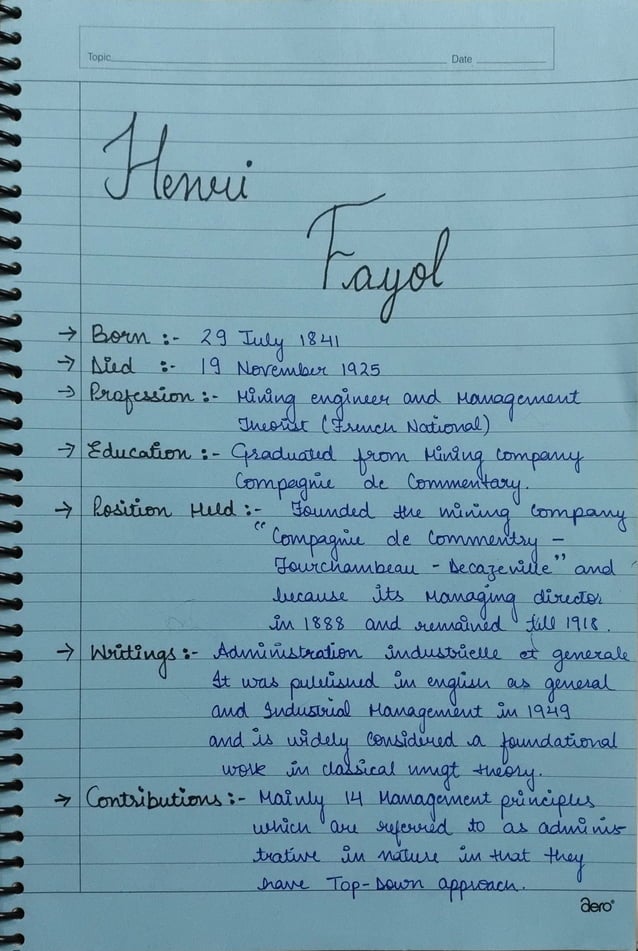 Topic Date
Henri
Fayol
→ Born :- 29 July 1841
→ Died :- 19 November 1925
→ Profession :- Mining engineer and Management
Theorist (French National)
→ Education :- Graduated from Mining Company
Compagnie de Commentary.
→ Position Held :- Founded the mining company
"Compagnie de Commentry -
Fourchambeau - Decazeville" and
because its Managing director
in 1888 and remained till 1918.
→ Writings :- Administration industrielle et generale
It was published in english as general
and Industrial Management in 1949
and is widely considered a foundational
work in classical mngt theory.
→ Contributions :- Mainly 14 Management principles
which are referred to as adminis-
trative in nature in that they
have Top-Down approach.
aero